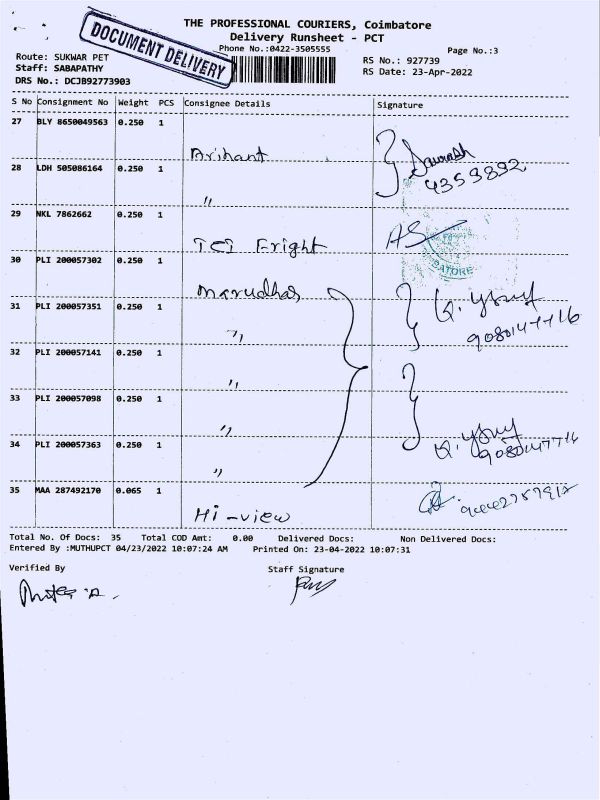 THE PROFESSIONAL COURIERS, Coimbatore
DOCUMENT DELIVERY
Delivery Runsheet - PCT
Phone No.:0422-3505555
Page No.:3
Route: SUKWAR PET
RS No.: 927739
Staff: SABAPATHY
RS Date: 23-Apr-2022
DRS No.: DCJB92773903
S No Consignment No Weight PCS Consignee Details Signature
27 BLY 8650049563 0.250 1
Arihant
28 LDH 505086164 0.250 1
4359892
"
29 NKL 7862662 0.250 1
TCI Fright AS
30 PLI 200057302 0.250 1
BATORE
Marudhar
31 PLI 200057351 0.250 1
"
32 PLI 200057141 0.250 1
"
33 PLI 200057098 0.250 1
"
34 PLI 200057363 0.250 1
"
35 MAA 287492170 0.065 1
Hi-view
Total No. Of Docs: 35 Total COD Amt: 0.00 Delivered Docs: Non Delivered Docs:
Entered By :MUTHUPCT 04/23/2022 10:07:24 AM Printed On: 23-04-2022 10:07:31
Verified By Staff Signature